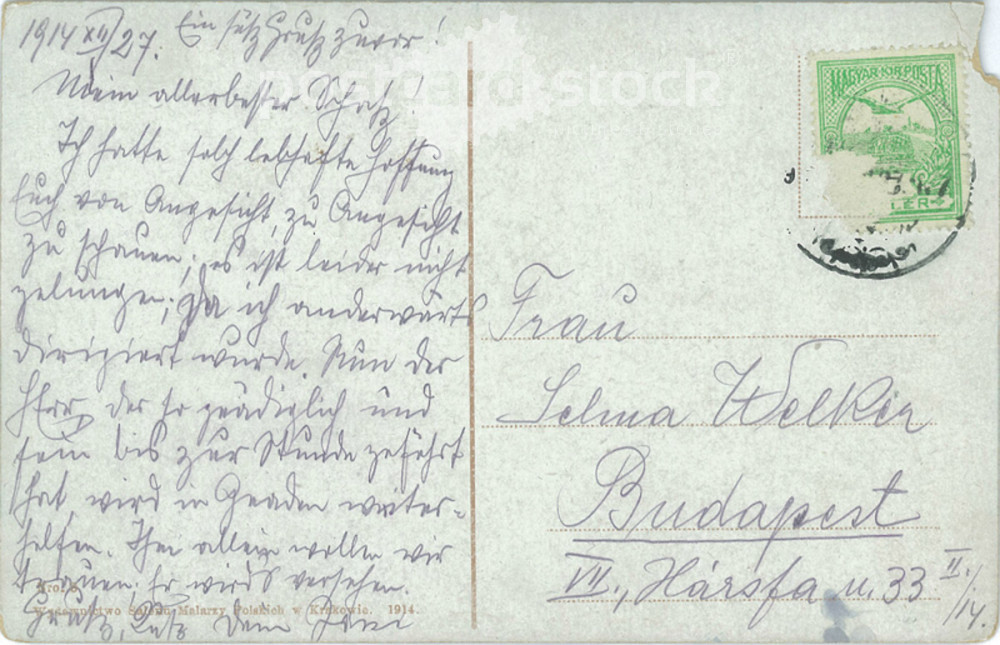 1914 XII/27. Ein süß Gruß zuvor!
Mein allerbester Schatz!
Ich hatte solch lebhafte Hoffnung
Euch von Angesicht, zu Angesicht
zu schauen; es ist leider nicht
gelungen; da ich anderwärts
dirigiert wurde. Nun der
HErr, der so gnädiglich und
fein bis zur Stunde geführt
hat, wird in Gnaden weiter-
helfen. Ihm allein wollen wir
trauen. Er wird's versehen.
Gruß, Kuß Dein
Wydawnictwo Salonu Malarzy Polskich w Krakowie. 1914.
MAGYAR KIR. POSTA
Frau
Selma Welker
Budapest
VII., Hársfa u. 33 II./14.